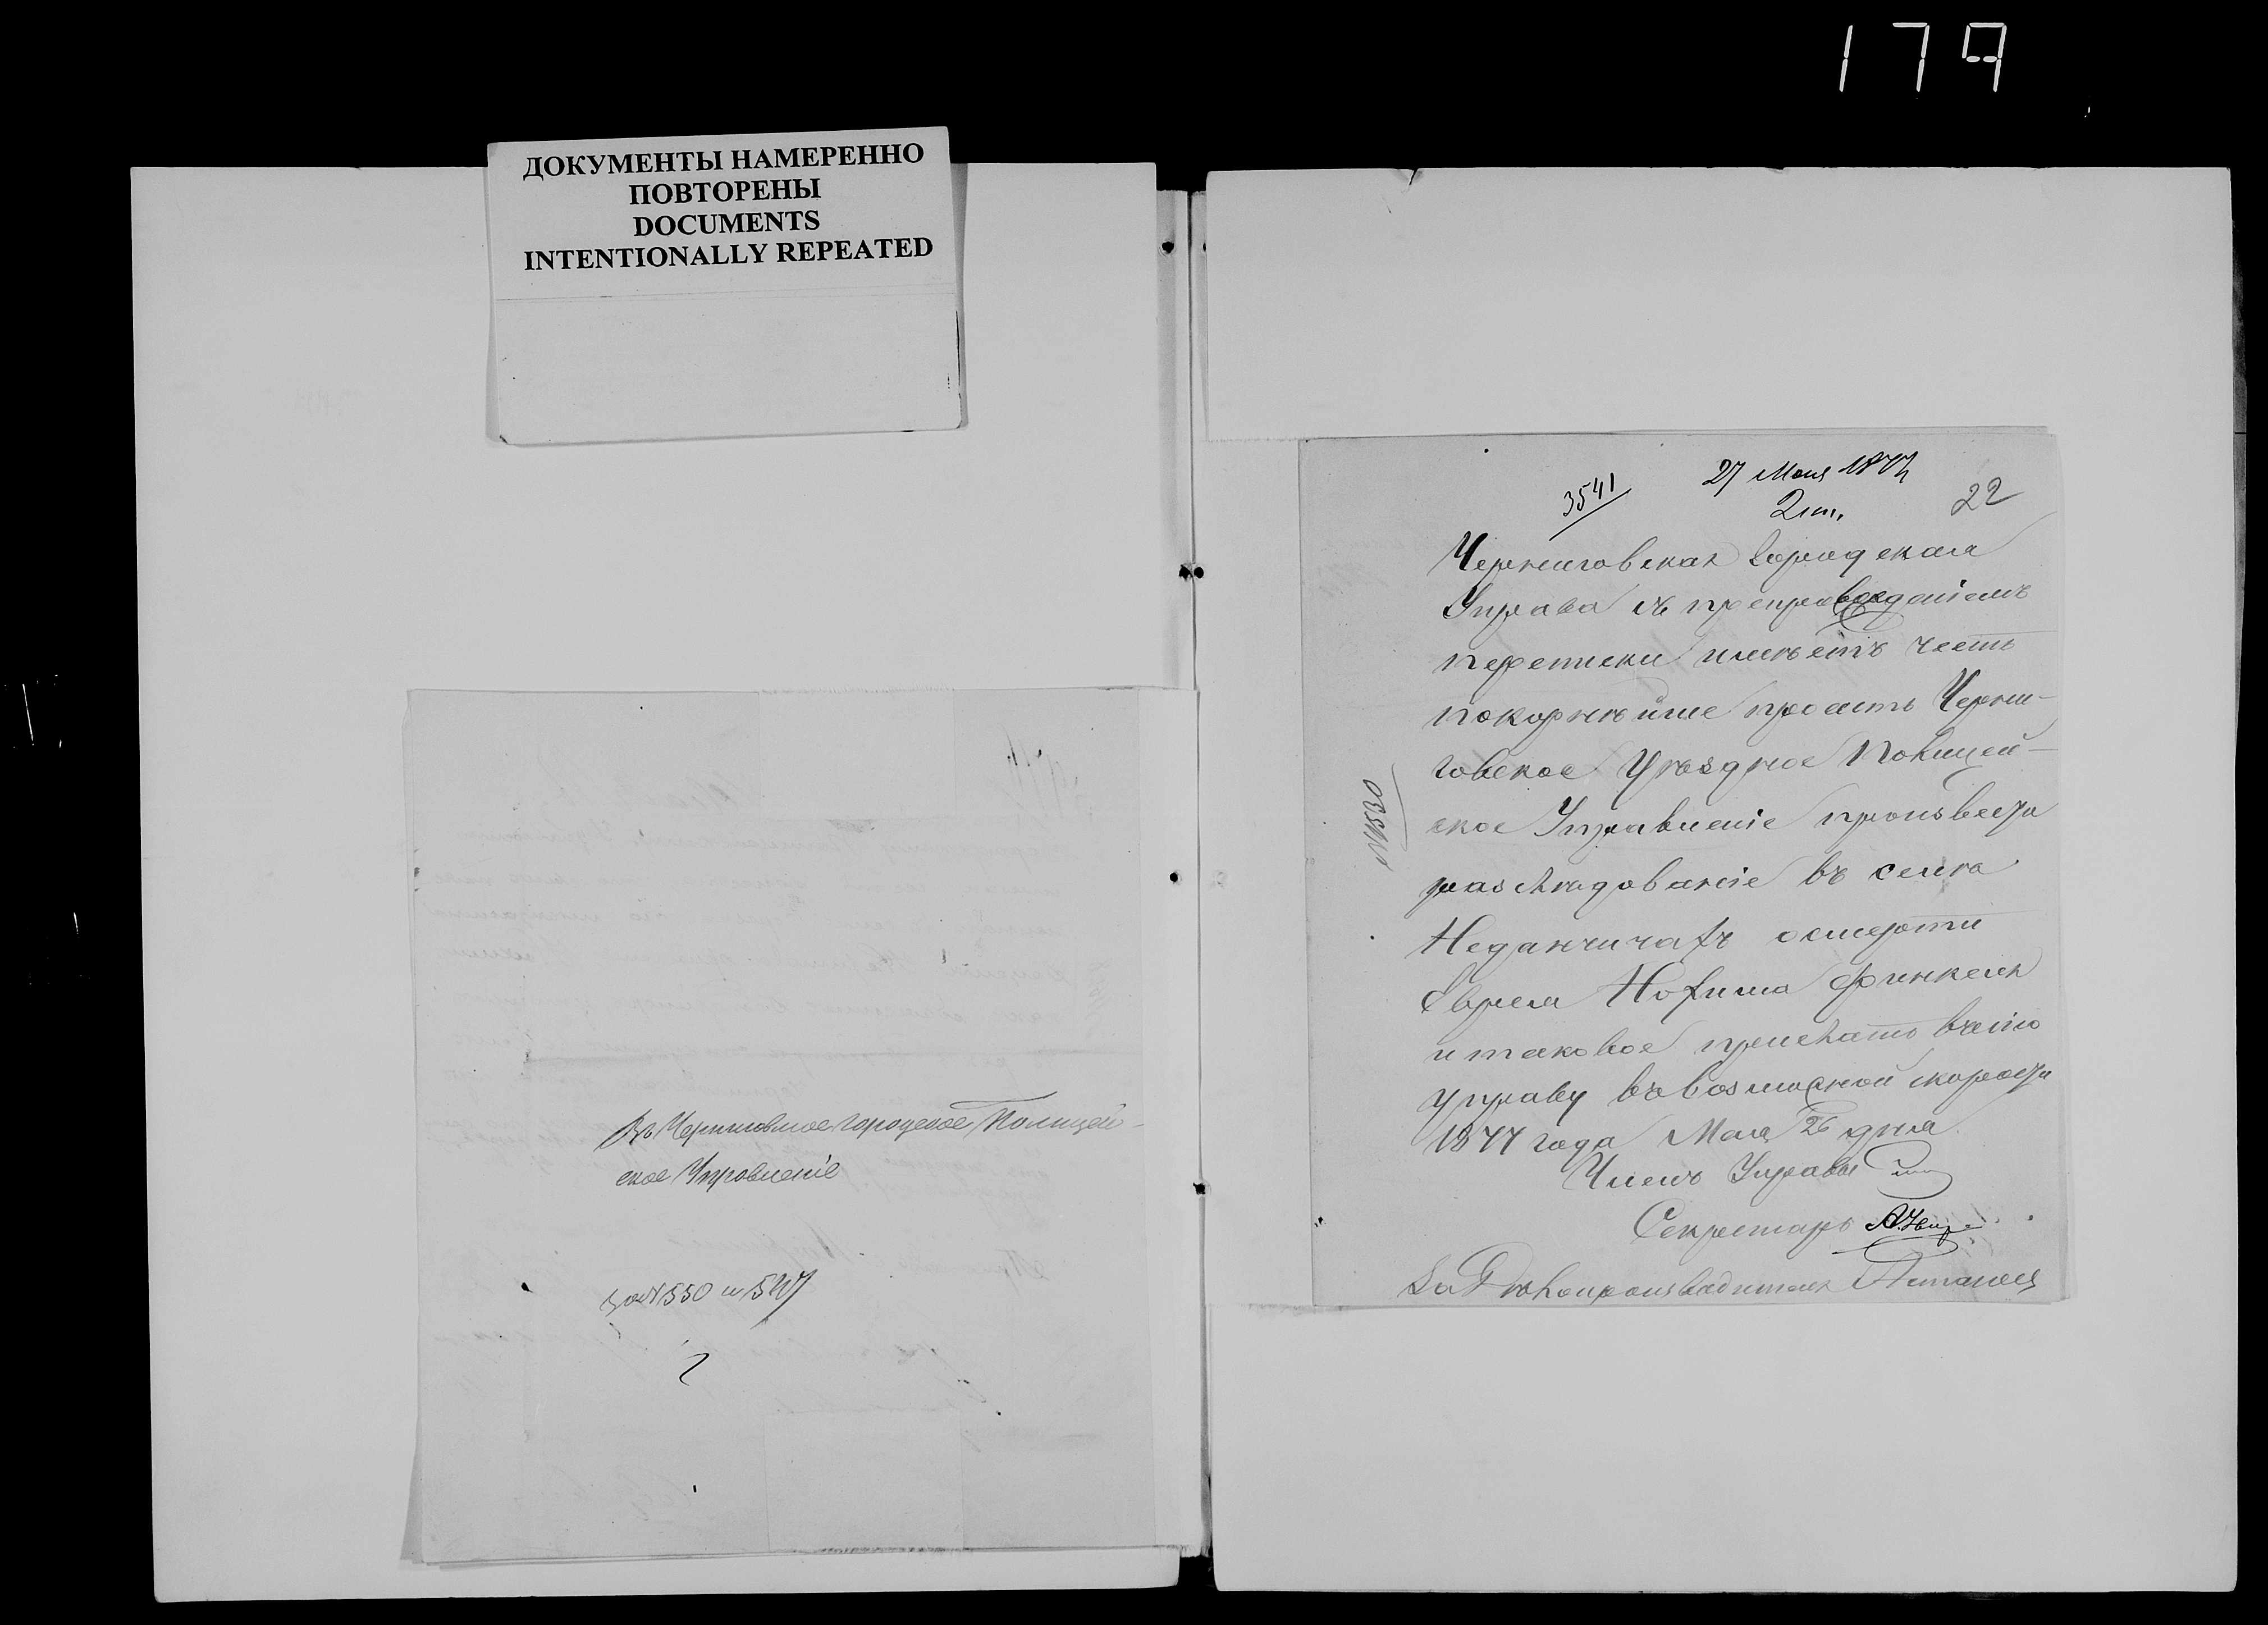 179
ДОКУМЕНТЫ НАМЕРЕННО
ПОВТОРЕНЫ
DOCUMENTS
INTENTIONALLY REPEATED
Въ Черниговское городское Полицей-
ское Управленіе
550 и
27 Мая 1877
3541
2 ст.
22
Черниговская Городская
Управа съ препровожденіемъ
переписки имѣетъ честь
покорнѣйше просить Черни-
говское Уѣздное Полицей-
ское Управленіе произвести
разслѣдованіе въ селѣ
Неданчичахъ о смерти
Еврея Нохима Финкеля
и таковое прислать въ сію
управу въ возможной скорости
1877 года Мая 26 дня
Членъ Управы
Секретарь
За Дѣлопроизводителя
№1550